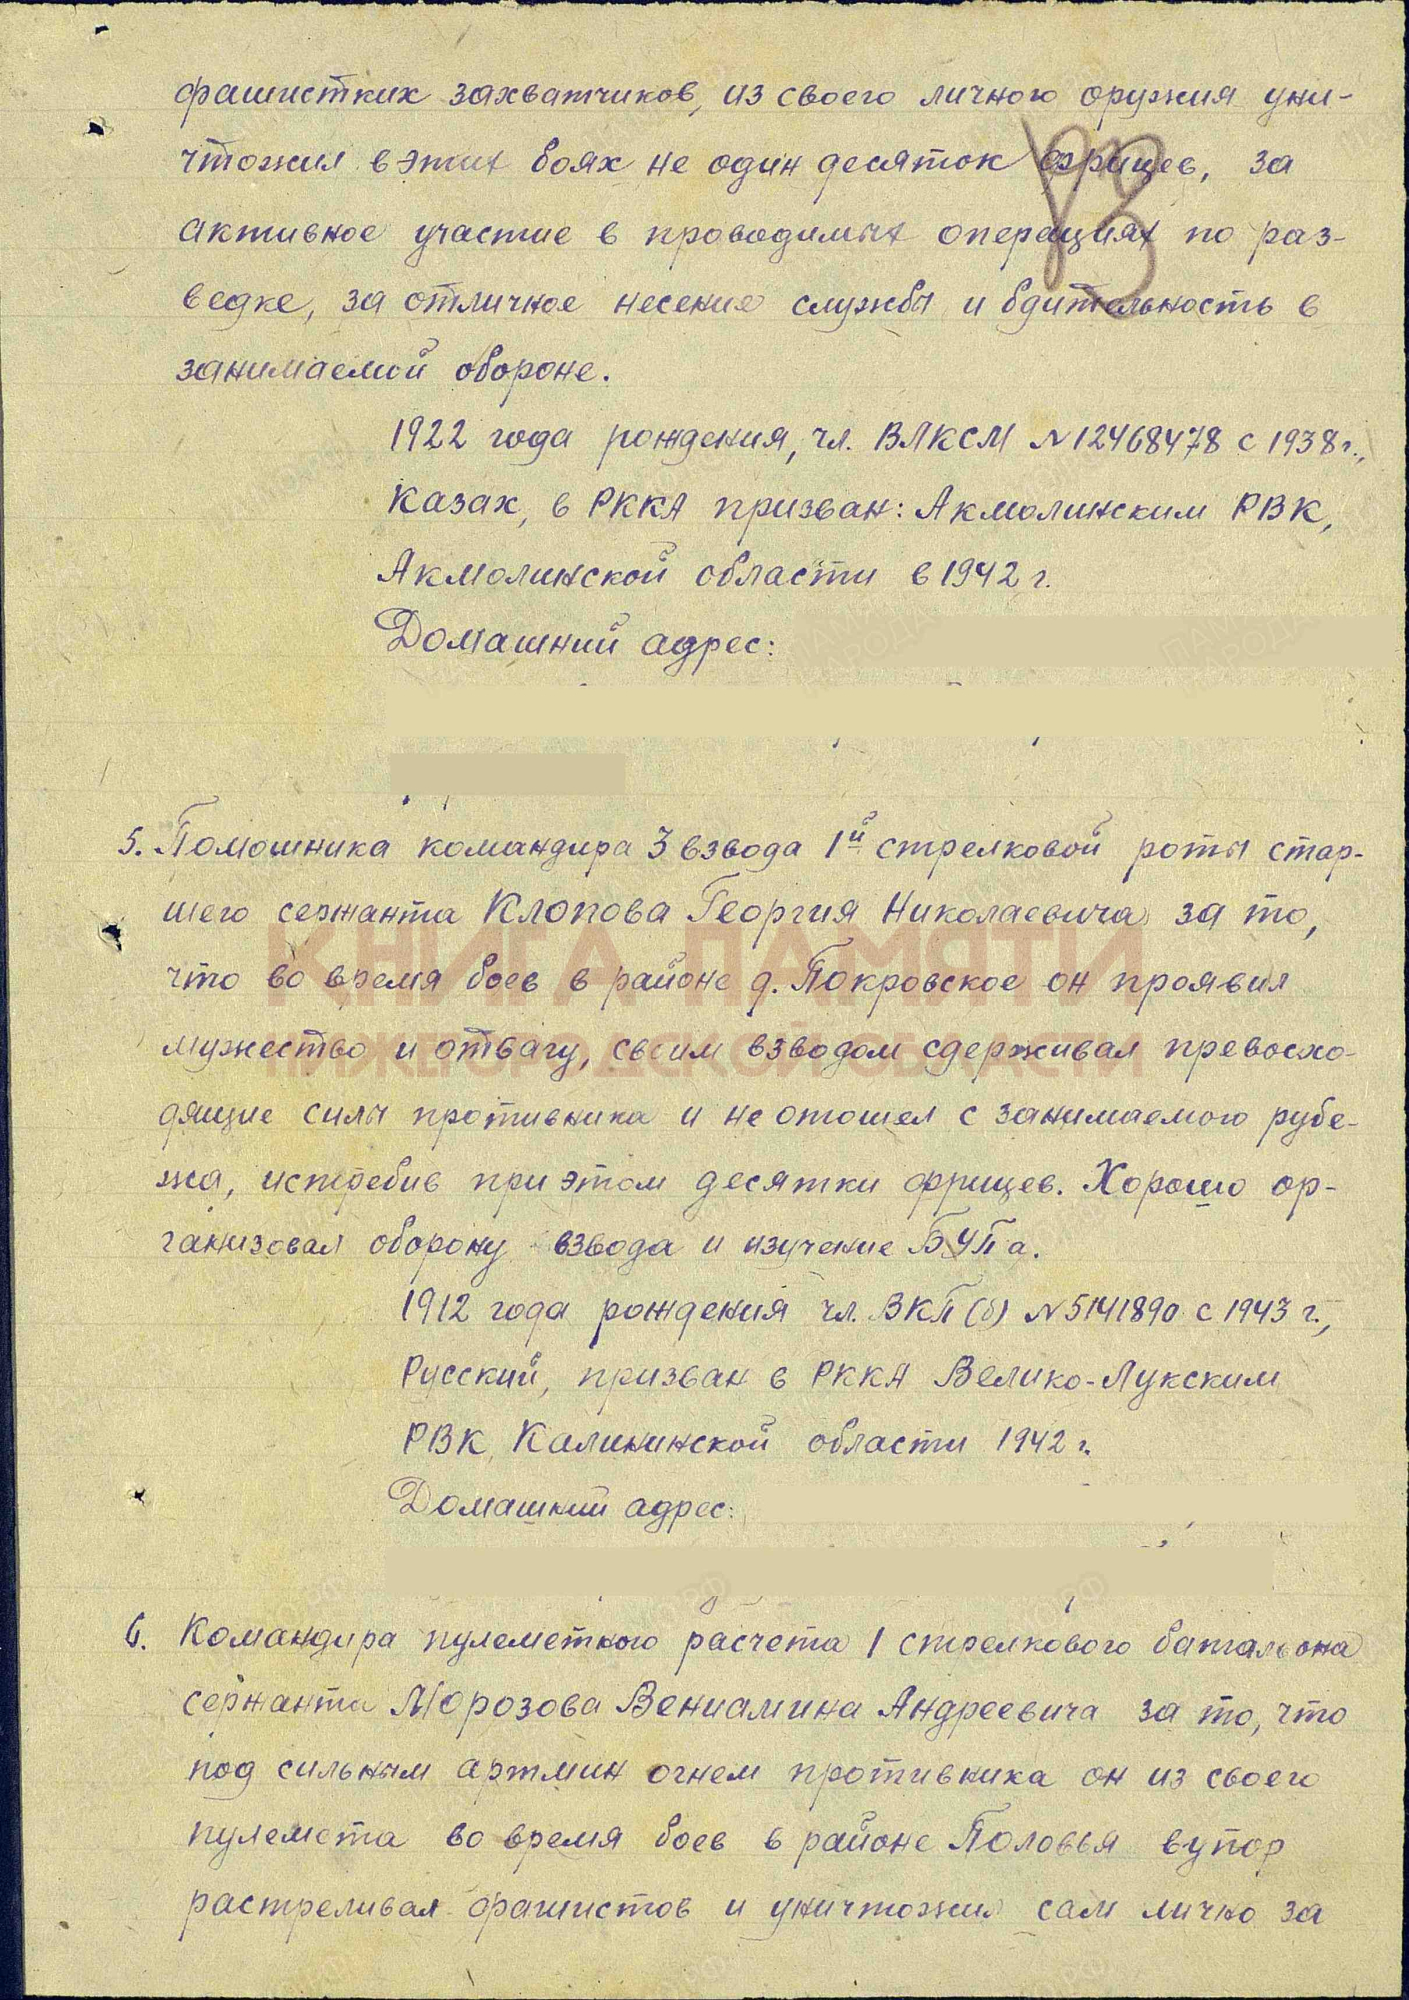 фашистких захватчиков, из своего личного оружия уни-
чтожил в этих боях не один десяток фрицев, за
активное участие в проводимых операциях по раз-
ведке, за отличное несение службы и бдительность в
занимаемой обороне.
1922 года рождения, чл. ВЛКСМ №12468478 с 1938 г.,
Казах, в РККА призван: Акмолинским РВК,
Акмолинской области в 1942 г.
Домашний адрес:
5. Помошника командира 3 взвода 1й стрелковой роты стар-
шего сержанта Клопова Георгия Николаевича за то,
КНИГА ПАМЯТИ
что во время боев в районе д. Покровское он проявил
мужество и отвагу, своим взводом сдерживал превосхо-
НИЖЕГОРОДСКОЙ ОБЛАСТИ
дящие силы противника и не отошел с занимаемого рубе-
жа, истребив при этом десятки фрицев. Хорошо ор-
ганизовал оборону взвода и изучение БУПа.
1912 года рождения чл. ВКП(б) №5141890 с 1943 г.,
Русский, призван в РККА Велико-Лукским
РВК, Калининской области 1942 г.
Домашний адрес:
6. Командира пулеметного расчета 1 стрелкового батальона
сержанта Морозова Вениамина Андреевича за то, что
под сильным артмин огнем противника он из своего
пулемета во время боев в районе Половья вупор
растреливал фашистов и уничтожил сам лично за